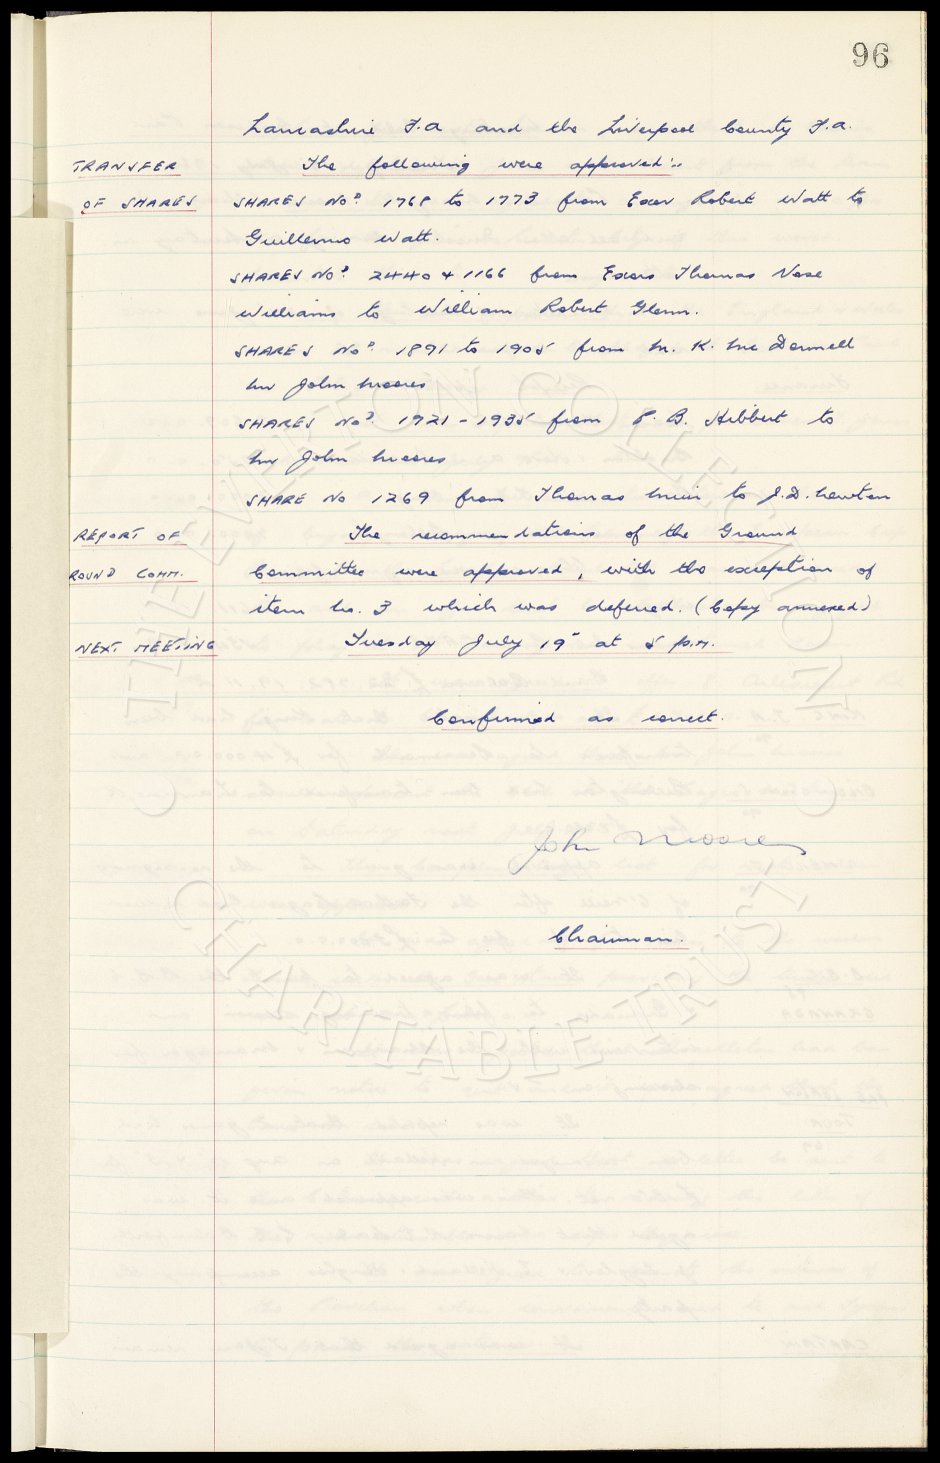 96
Lancashire F.A and the Liverpool County F.A.
TRANSFER The following were approved:-
OF SHARES SHARES Nos. 1768 to 1773 from Exor Robert Watt to
Guillermo Watt.
SHARES Nos. 2440 & 1166 from Exors Thomas Vose
Williams to William Robert Glenn.
SHARES Nos. 1891 to 1905 from M. K. McDonnell
Mr John Moores
SHARES Nos. 1921-1935 from P. B. Hibbert to
Mr John Moores
SHARE No 1269 from Thomas Muir to J.D. Newton
REPORT OF The recommendations of the Ground
ROUND COMM. Committee were approved, with the exception of
item No. 3 which was deferred. (Copy annexed)
NEXT MEETING Tuesday July 19 at 5 p.m.
Confirmed as correct.
John Moores
Chairman.
THE EVERTON COLLECTION
CHARITABLE TRUST